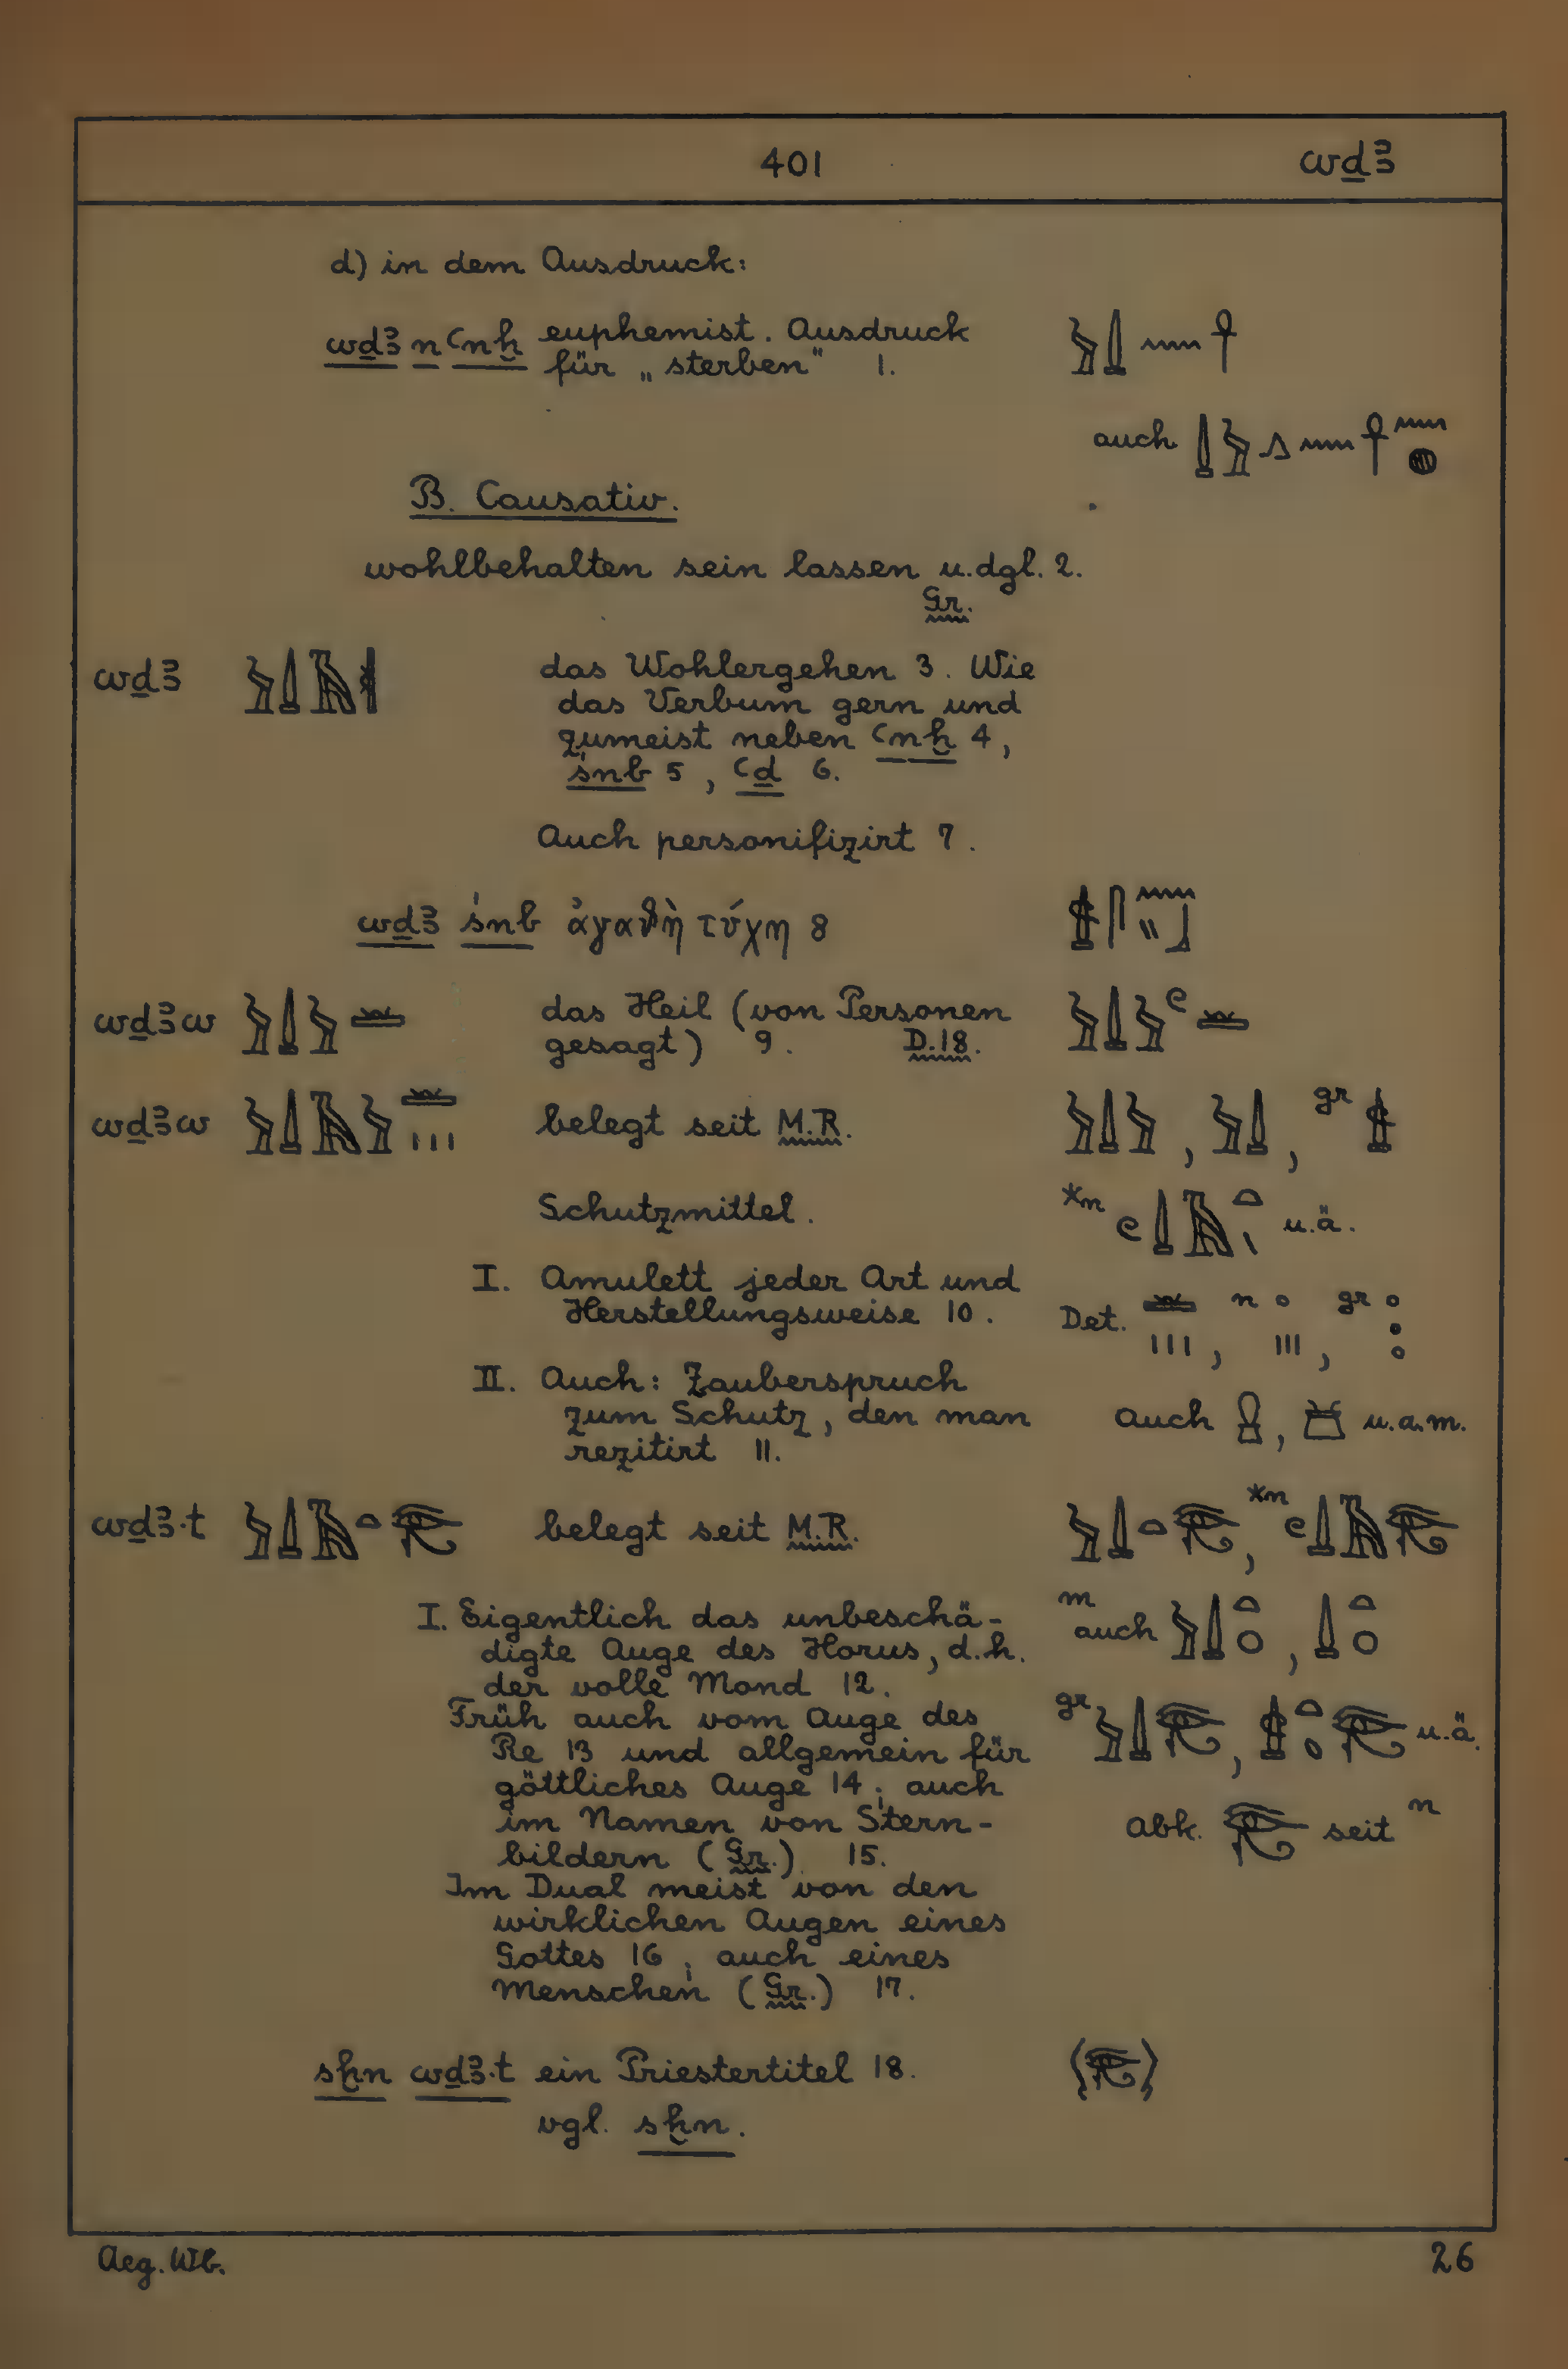 401 wḏꜣ
d) in dem Ausdruck:
wḏꜣ n ꜥnḫ euphemist. Ausdruck
für „sterben" 1.
auch
B. Causativ.
wohlbehalten sein lassen u.dgl. 2.
Gr.
wḏꜣ das Wohlergehen 3. Wie
das Verbum gern und
zumeist neben ꜥnḫ 4,
śnb 5, ꜥḏ 6.
Auch personifizirt 7.
wḏꜣ śnb ἀγαθὴ τύχη 8
wḏꜣw das Heil (von Personen
gesagt) 9. D.18.
wḏꜣw belegt seit M.R. , , gr
Schutzmittel. *n u.ä.
I. Amulett jeder Art und
Herstellungsweise 10. Det. , n , gr
II. Auch: Zauberspruch
zum Schutz, den man auch , u.a.m.
rezitirt 11.
wḏꜣ.t belegt seit M.R. , *n
I. Eigentlich das unbeschä- m auch ,
digte Auge des Horus, d.h.
der volle Mond 12.
Früh auch vom Auge des gr , u.ä.
Re 13 und allgemein für
göttliches Auge 14; auch
im Namen von Stern- Abk. seit n
bildern (Gr.) 15.
Im Dual meist von den
wirklichen Augen eines
Gottes 16; auch eines
Menschen (Gr.) 17.
sḫn wḏꜣ.t ein Priestertitel 18.
vgl. sḫn.
Aeg. Wb. 26